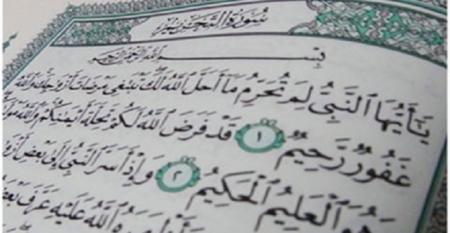 سُورَةُ التَّحْرِيمِ
بِسْمِ اللَّهِ الرَّحْمَٰنِ الرَّحِيمِ
يَٰٓأَيُّهَا ٱلنَّبِىُّ لِمَ تُحَرِّمُ مَآ أَحَلَّ ٱللَّهُ لَكَ تَبْتَغِى مَرْضَاتَ أَزْوَٰجِكَ وَٱللَّهُ
غَفُورٌ رَّحِيمٌ ١ قَدْ فَرَضَ ٱللَّهُ لَكُمْ تَحِلَّةَ أَيْمَٰنِكُمْ وَٱللَّهُ
وَهُوَ ٱلْعَلِيمُ ٱلْحَكِيمُ ٢ وَإِذْ أَسَرَّ ٱلنَّبِىُّ إِلَىٰ بَعْضِ
ٱللَّهُ عَلَيْهِ عَرَّفَ بَعْضَهُ